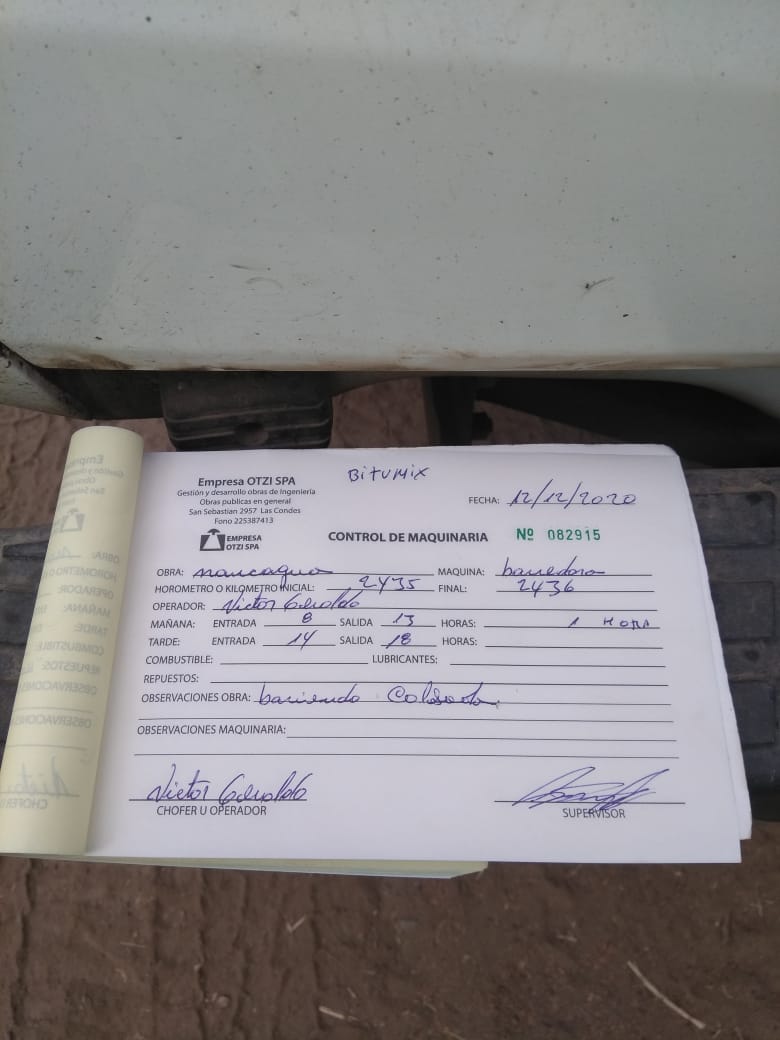 Bitumix
Empresa OTZI SPA
Gestión y desarrollo obras de Ingeniería
Obras publicas en general
San Sebastian 2957 Las Condes
Fono 225387413
FECHA: 12/12/2020
EMPRESA
OTZI SPA
CONTROL DE MAQUINARIA Nº 082915
OBRA: nancagua MAQUINA: barredora
HOROMETRO O KILOMETRO INICIAL: 2435 FINAL: 2436
OPERADOR: Victor
MAÑANA: ENTRADA 8 SALIDA 13 HORAS: 1 HORA
TARDE: ENTRADA 14 SALIDA 18 HORAS:
COMBUSTIBLE: LUBRICANTES:
REPUESTOS:
OBSERVACIONES OBRA: barriendo Calsada.
OBSERVACIONES MAQUINARIA:
Victor
CHOFER U OPERADOR
SUPERVISOR